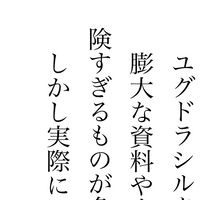 ユグドラシル
膨大な資料や
険すぎるものが
しかし実際に